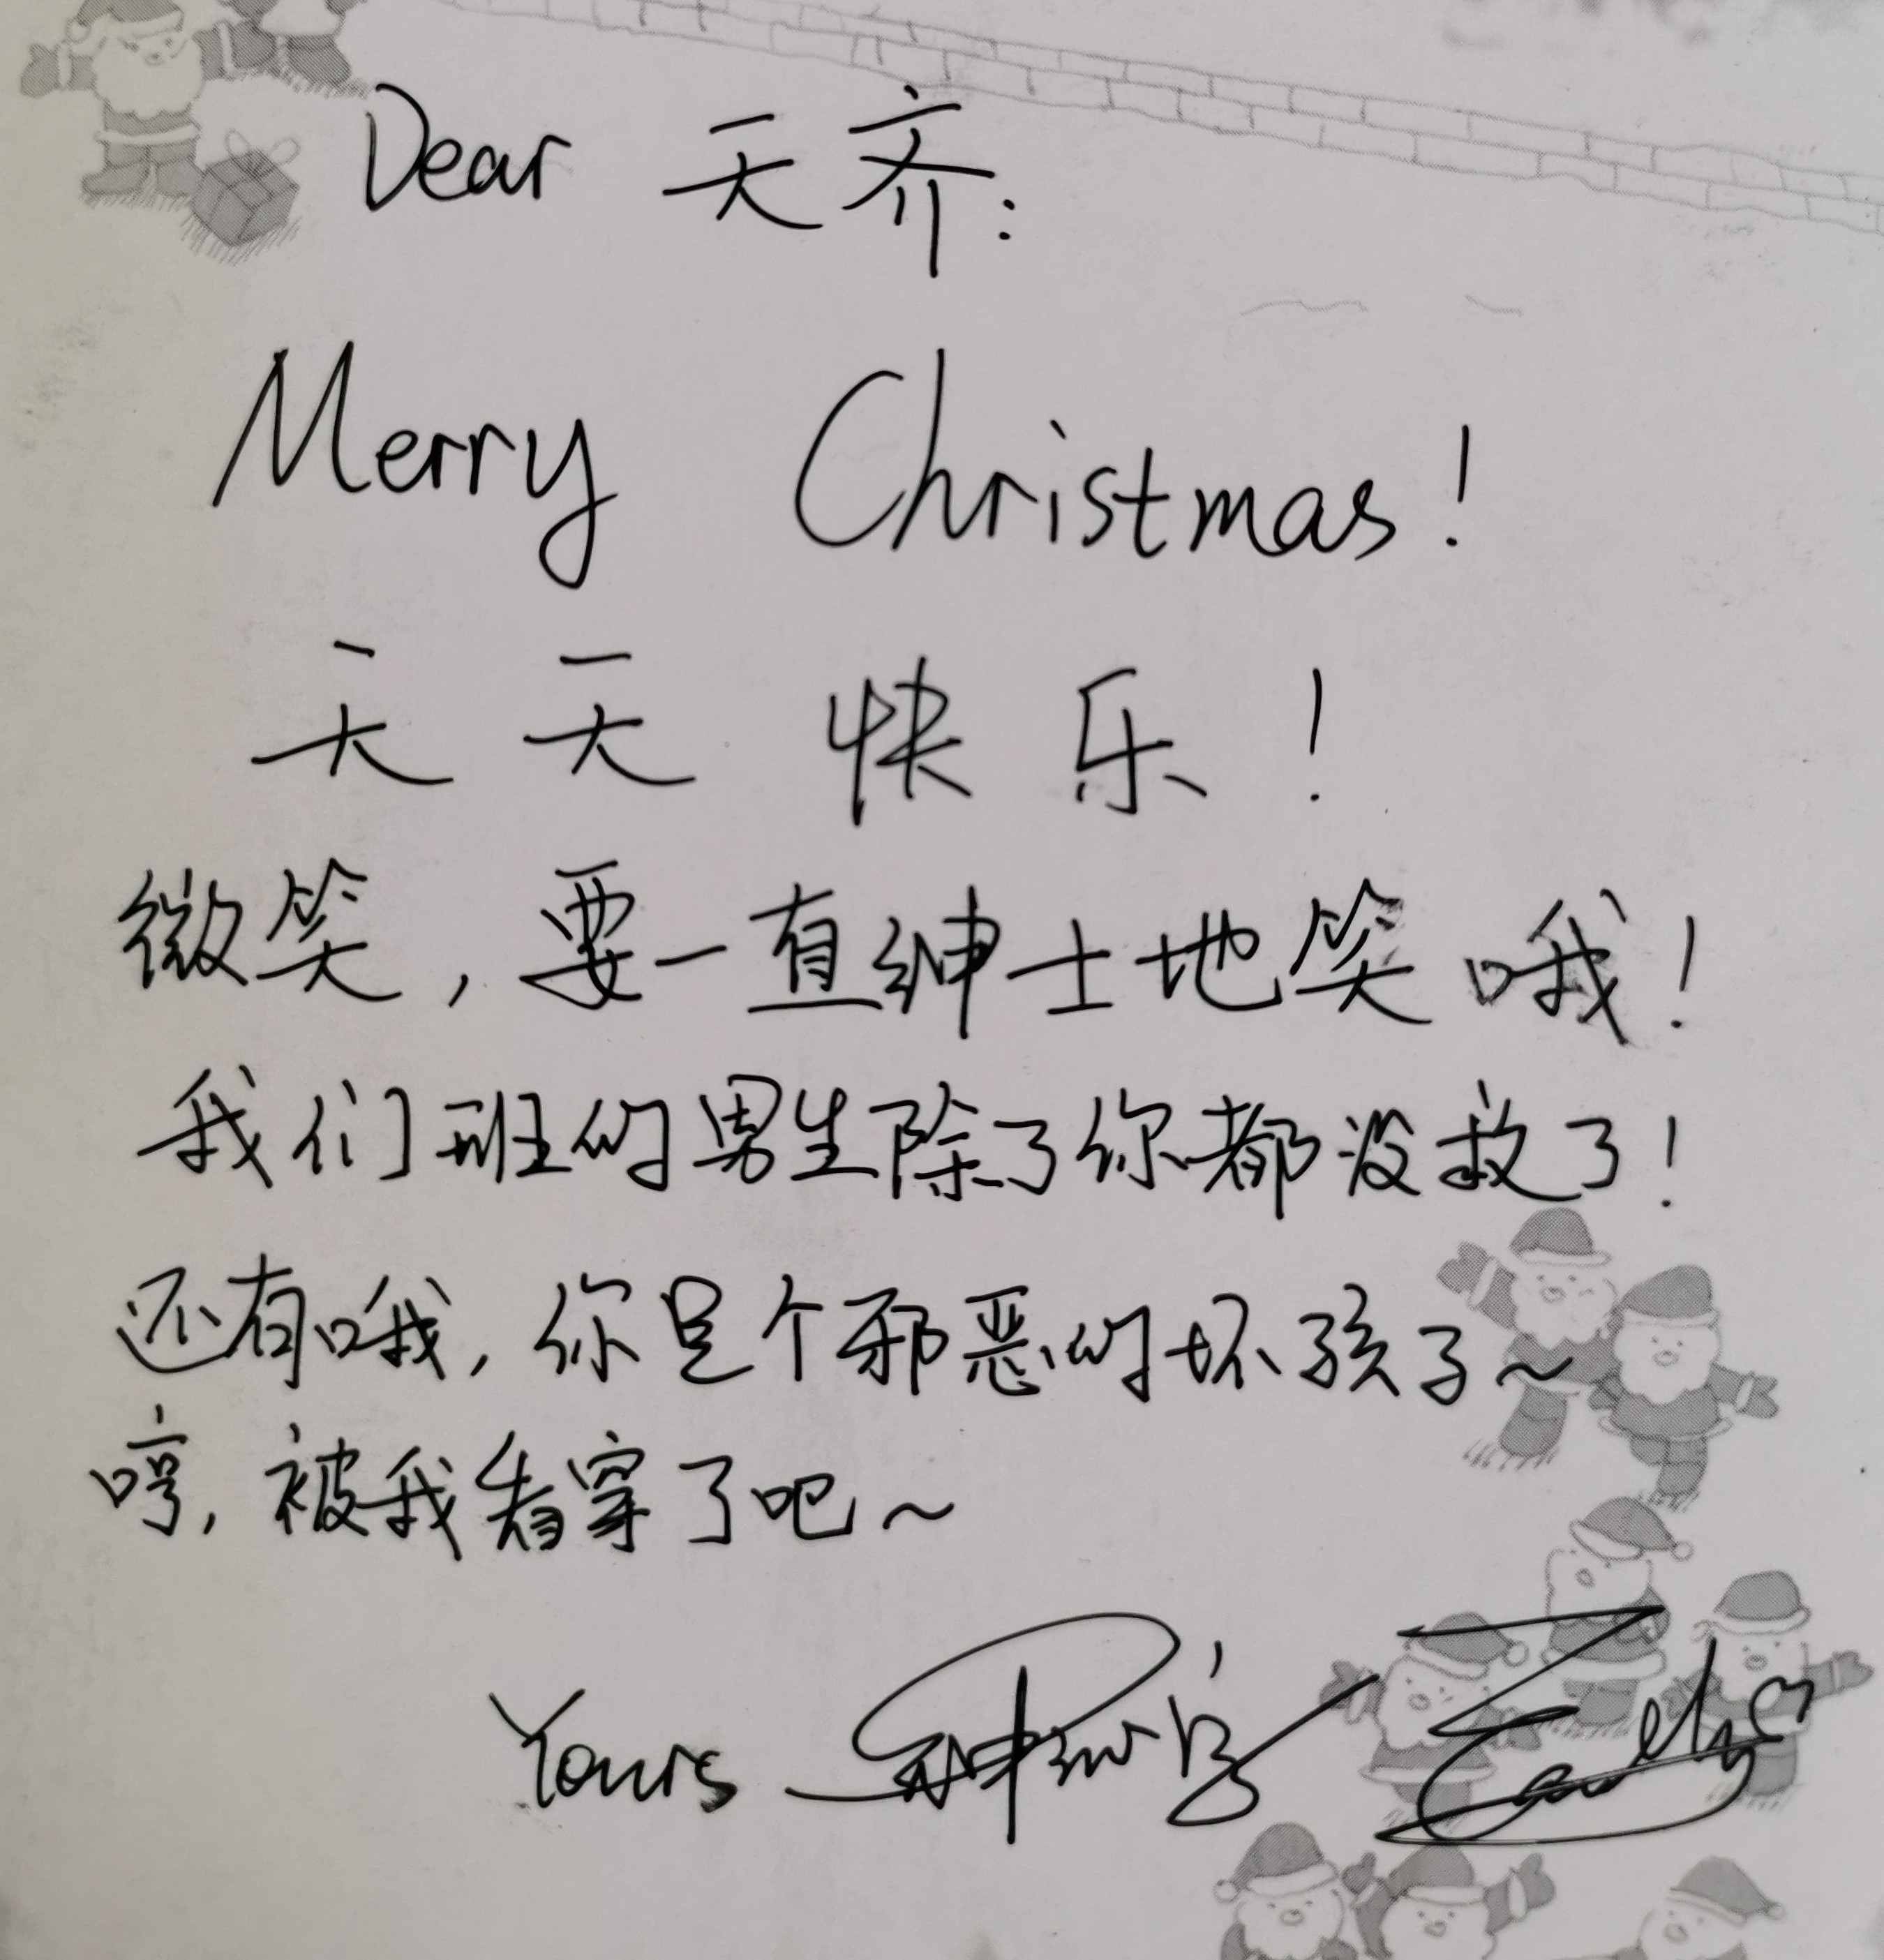 Dear 天齐:
Merry Christmas!
天天快乐!
微笑,要一直绅士地笑哦!
我们班的男生除了你都没救了!
还有哦,你是个邪恶的坏孩子~
哼,被我看穿了吧~
Yours